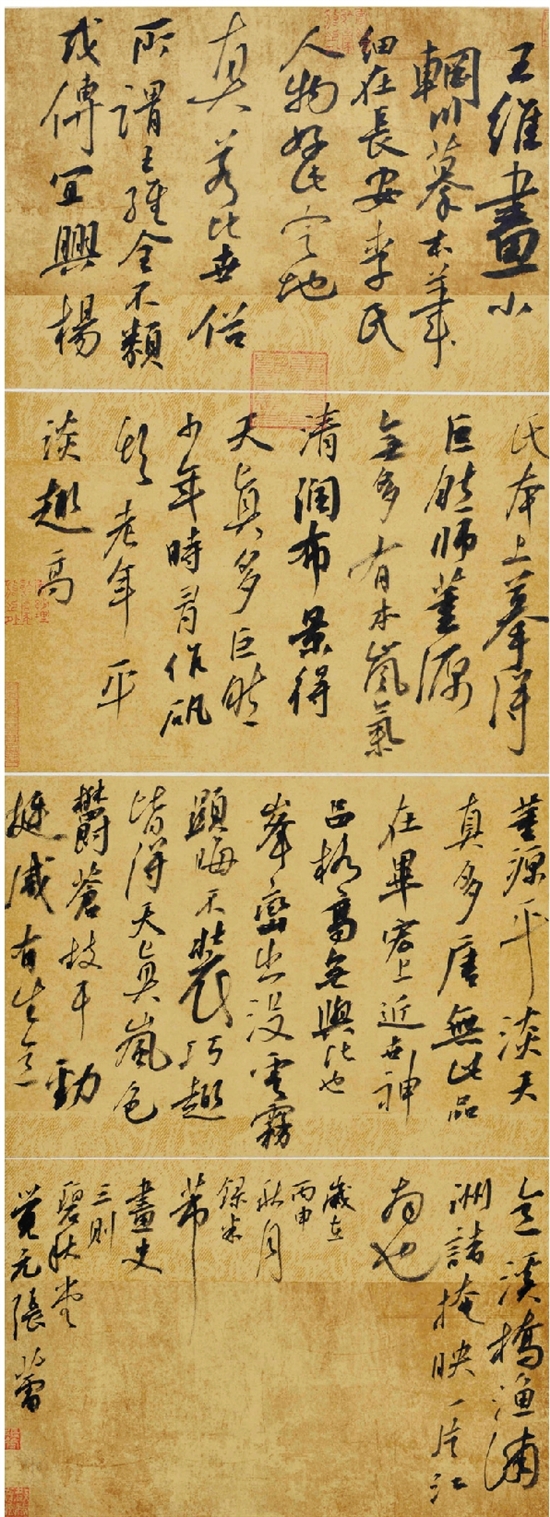 王維畫小
輞川摹本筆
細在長安李氏
人物好此定地
真若比世俗
所謂王維全不類
或傳宜興楊
氏本上摹得
巨然師董源
多有本嵐氣
清潤布景得
天真多巨然
少年時作礬
頭老年平
淡趣高
董源平淡天
真多唐無此品
在畢宏上近世神
品格高無與比也
峯巒出沒雲霧
顯晦不裝巧趣
皆得天真嵐色
鬱蒼枝干勁
挺咸有生意
意溪橋漁浦
洲諸掩映一片江
南也
歲在
丙申
秋月
錄米
芾
畫史
三則
碧秋堂
覺元張蕾